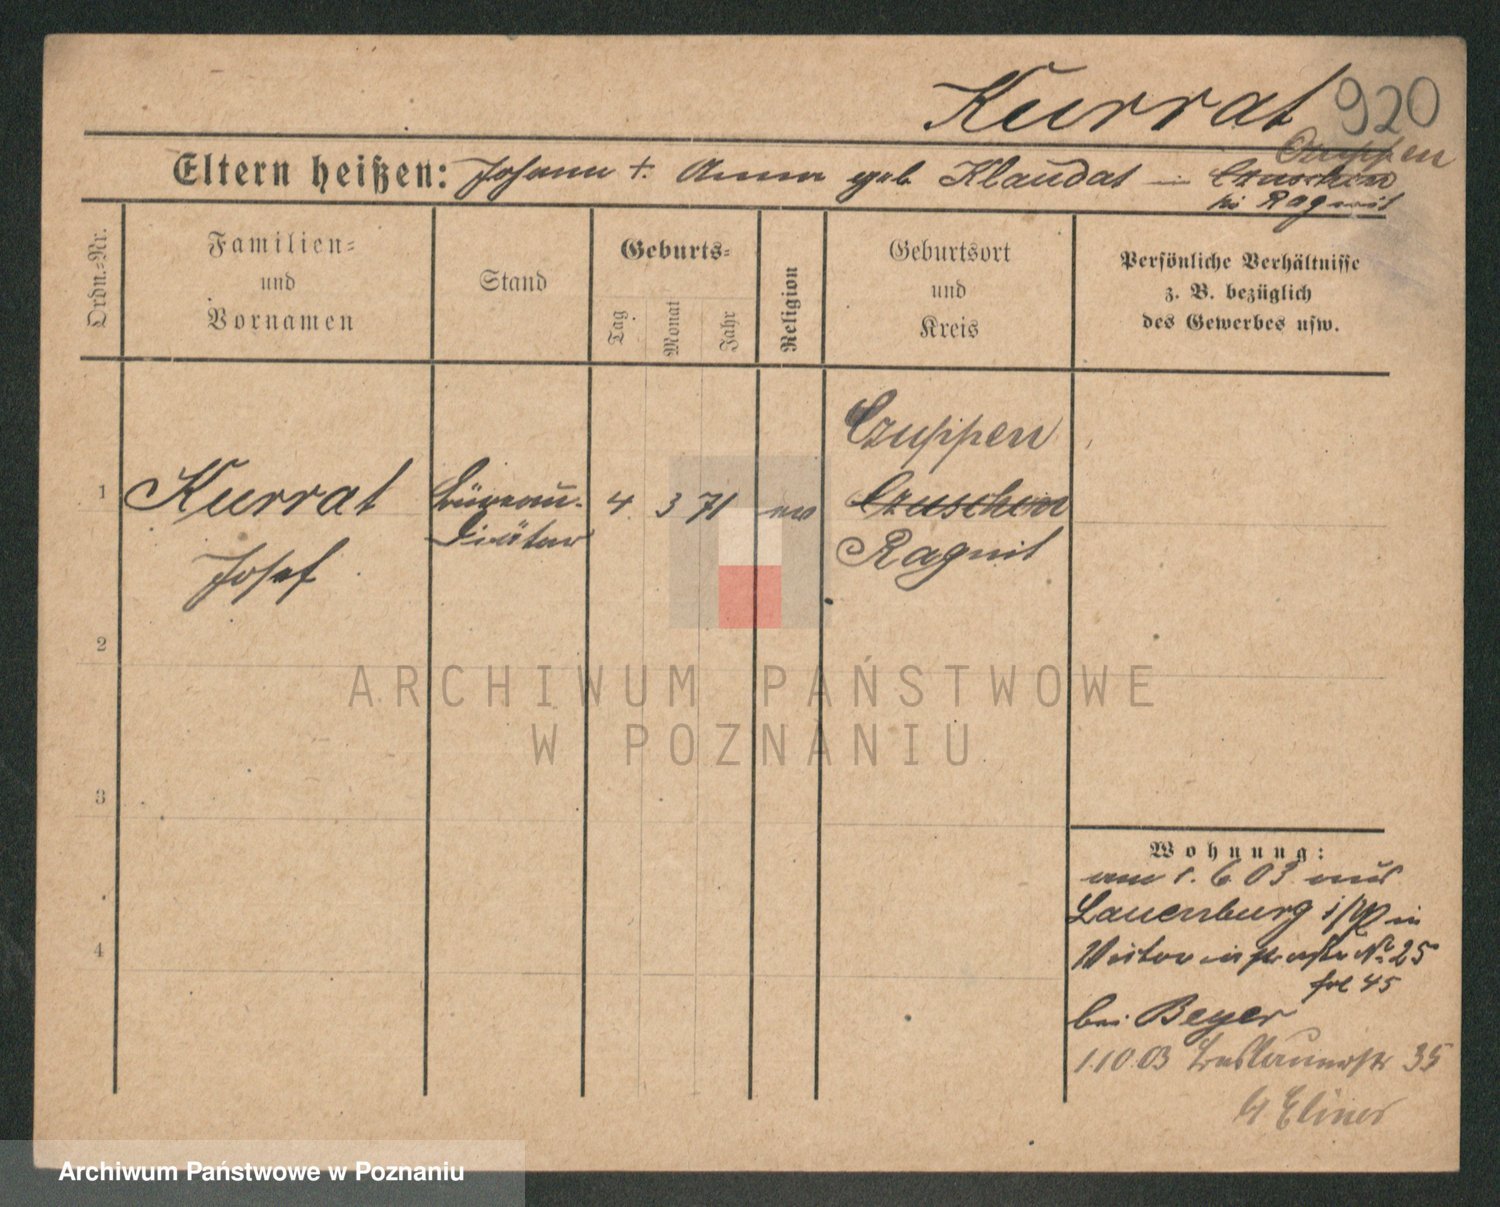 Kurrat 920
Czuppen
Eltern heißen: Johann +. Anna geb Klaudat — Czuschen
bei Ragnit
Ordn.-Nr.
Familien-
und
Vornamen
Stand
Geburts-
Tag
Monat
Jahr
Religion
Geburtsort
und
Kreis
Persönliche Verhältnisse
z. B. bezüglich
des Gewerbes usw.
Czuppen
1 Kurrat Büreau- 4 3 71 ev Czuschen
Josef Diätar Ragnit
2
3
4
Wohnung:
am 1.6.03 aus
Lauenburg i/P in
N° 25
45
bei Beyer
1.10.03 35
b/ Eliner
ARCHIWUM PAŃSTWOWE
W POZNANIU
Archiwum Państwowe w Poznaniu